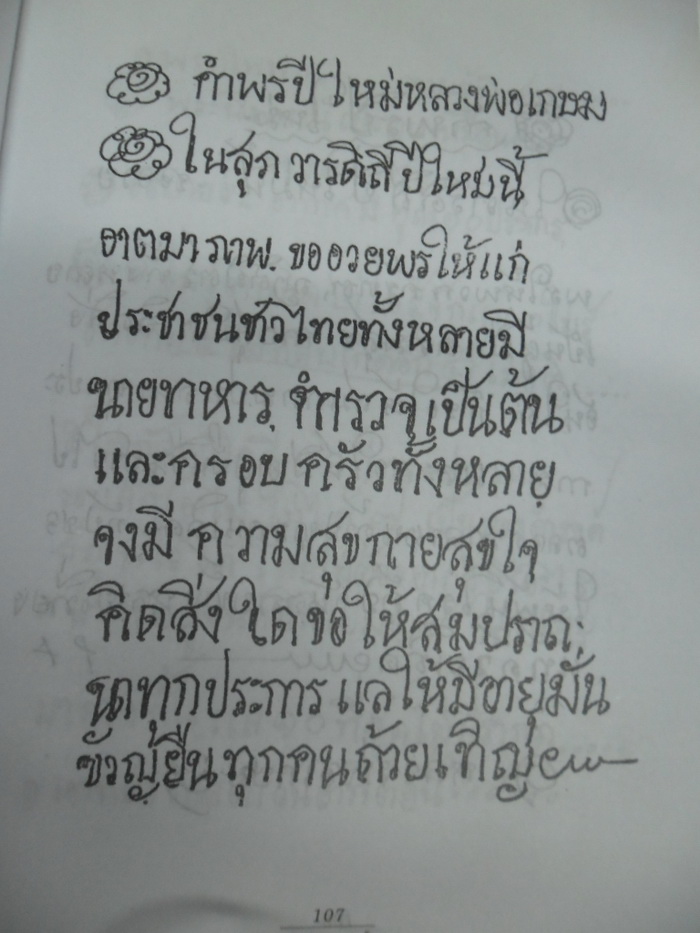 คำพรปีใหม่หลวงพ่อเกษม
ในสุภวารดิถีปีใหม่นี้
อาตมาภาพ. ขออวยพรให้แก่
ประชาชนชาวไทยทั้งหลายมี
นายทหาร, ตำรวจ เป็นต้น
และครอบครัวทั้งหลาย
จงมีความสุขกายสุขใจ
คิดสิ่งใดขอให้สมปรารถ
นาทุกประการ แลให้มีอายุมั่น
ขัวญยืนทุกคนด้วยเทิญ
107